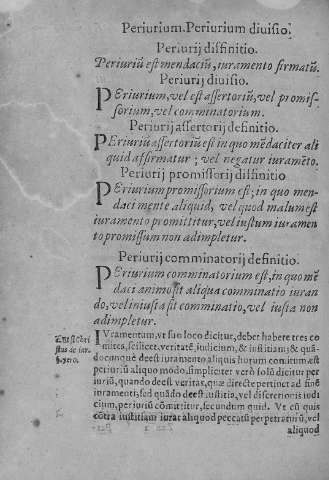 Periurium. Periurium diuisio.
Periurij diffinitio.
Periuriũ est mendaciũ, iuramento firmatũ.
Periurij diuisio.
PEriurium, vel est assertoriũ, vel promis-
sorium, vel comminatorium.
Periurij assertorij definitio.
PEriuriũ assertoriũ est in quo mẽdaciter ali
quid affirmatur; vel negatur iuramẽto.
Periurij promissorij diffinitio
PEriurium promissorium est; in quo men-
daci mente aliquid, vel quod malum est
iuramento promittitur, vel iustum iuramen
to promissum non adimpletur.
Periurij comminatorij definitio.
PEriurium comminatorium est, in quo mẽ
daci animo sit aliqua comminatio iuran
do, vel iniusta sit comminatio, vel iusta non
adimpletur.
IVramentum, vt suo loco dicitur, debet habere tres co
mites, scilicet, veritatẽ, iudicium, & iustitiam; & quã-
docunque deest iuramento aliquis horum comitum æst
periuriũ aliquo modo, simpliciter verò solũ dicitur per
iuriũ, quando deest veritas, quæ directe pertinet ad finẽ
iuramenti, sed quãdo deest iustitia, vel discretionis iudi
cium, periuriũ cõmittitur, secundum quid. Vt cũ quis
cõtra iustitiam iurat aliquod peccatũ perpetraturũ, vel
aliquod